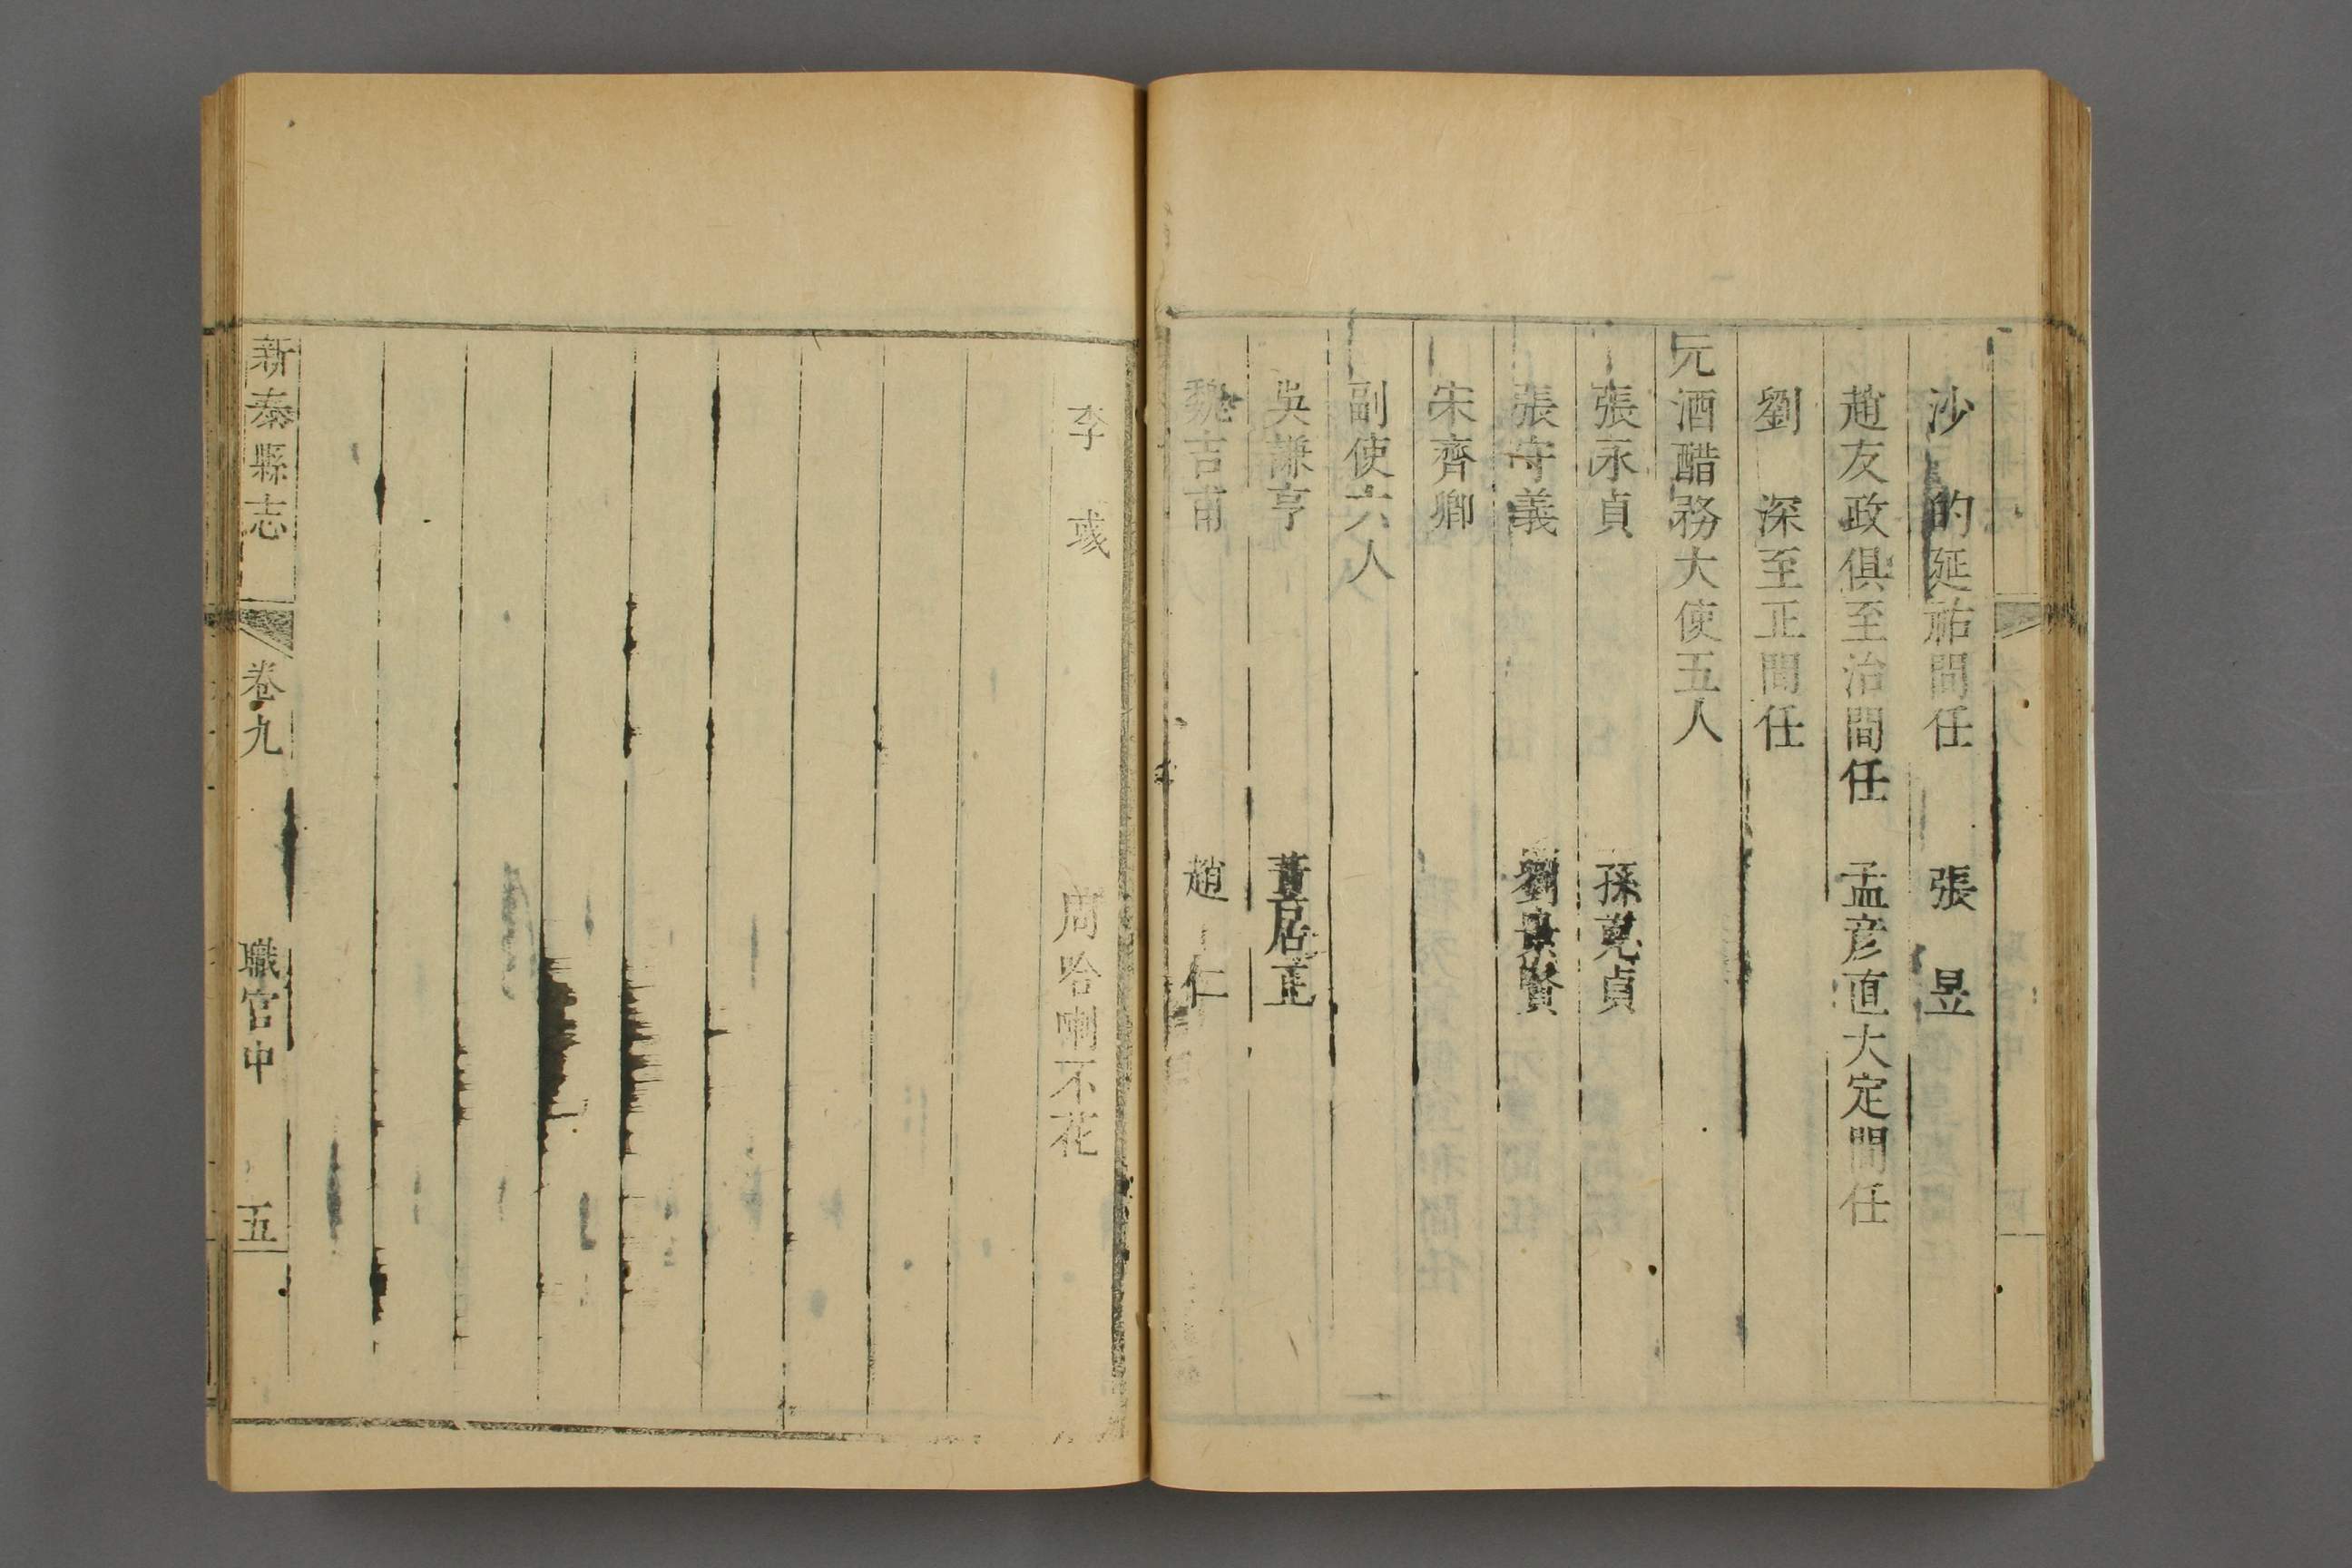 沙　的延祐間任　張　昱
趙友政俱至治間任　孟彥直大定間任
劉　深至正間任
元酒醋務大使五人
張永貞　孫克貞
張守義　劉景賢
宋齊卿
副使六人
吳謙亨　董居正
魏吉甫　趙　仁
李　彧　周哈喇不花
新泰縣志　卷九　職官中　五